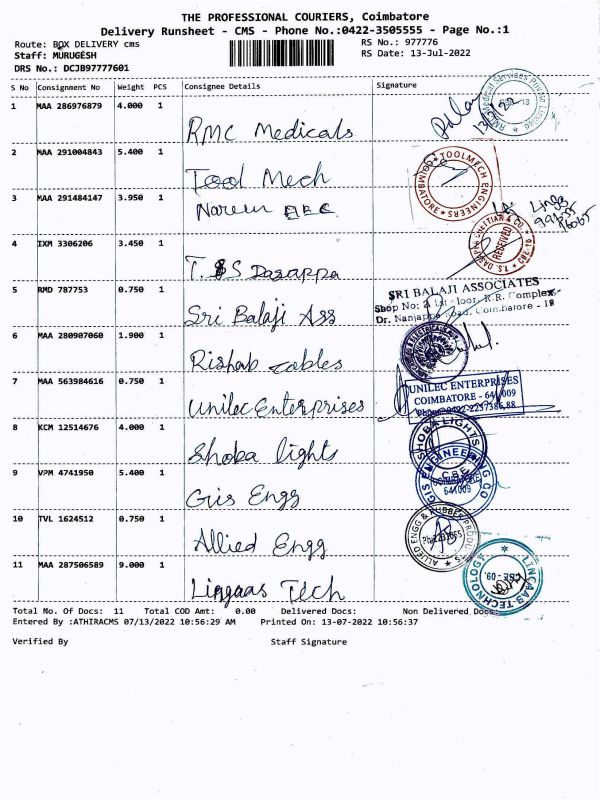 THE PROFESSIONAL COURIERS, Coimbatore
Delivery Runsheet - CMS - Phone No.:0422-3505555 - Page No.:1
Route: BOX DELIVERY cms
RS No.: 977776
Staff: MURUGESH
RS Date: 13-Jul-2022
DRS No.: DCJB97777601
S No Consignment No Weight PCS Consignee Details Signature
1 MAA 286976879 4.000 1
RMC Medicals
2 MAA 291004843 5.400 1
Tool Mech
TOOLMECH ENGINEERS COIMBATORE
3 MAA 291484147 3.950 1
Nareen
4 IXM 3306206 3.450 1
T. S Dasappa
RECEIVED
5 RMD 787753 0.750 1
Sri Balaji Ass
SRI BALAJI ASSOCIATES
Shop No: Floor, R.R. Complex
Dr. Nanjappa Road, Coimbatore - 18
6 MAA 280907060 1.900 1
Rishab cables
7 MAA 563984616 0.750 1
Unilec Enterprises
UNILEC ENTERPRISES
COIMBATORE - 641009
8 KCM 12514676 4.000 1
Shoba lights
SHOBA LIGHTS
CBE
9 VPM 4741950 5.400 1
Gis Engg
GIS ENGINEERING CO
641009
10 TVL 1624512 0.750 1
Allied Engg
ALLIED ENGG & RUBBER PRODUCTS
11 MAA 287506589 9.000 1
Lingaas Tech
LINGAAS TECHNOLOGY
CBE - 09.
Total No. Of Docs: 11 Total COD Amt: 0.00 Delivered Docs: Non Delivered Docs:
Entered By :ATHIRACMS 07/13/2022 10:56:29 AM Printed On: 13-07-2022 10:56:37
Verified By Staff Signature